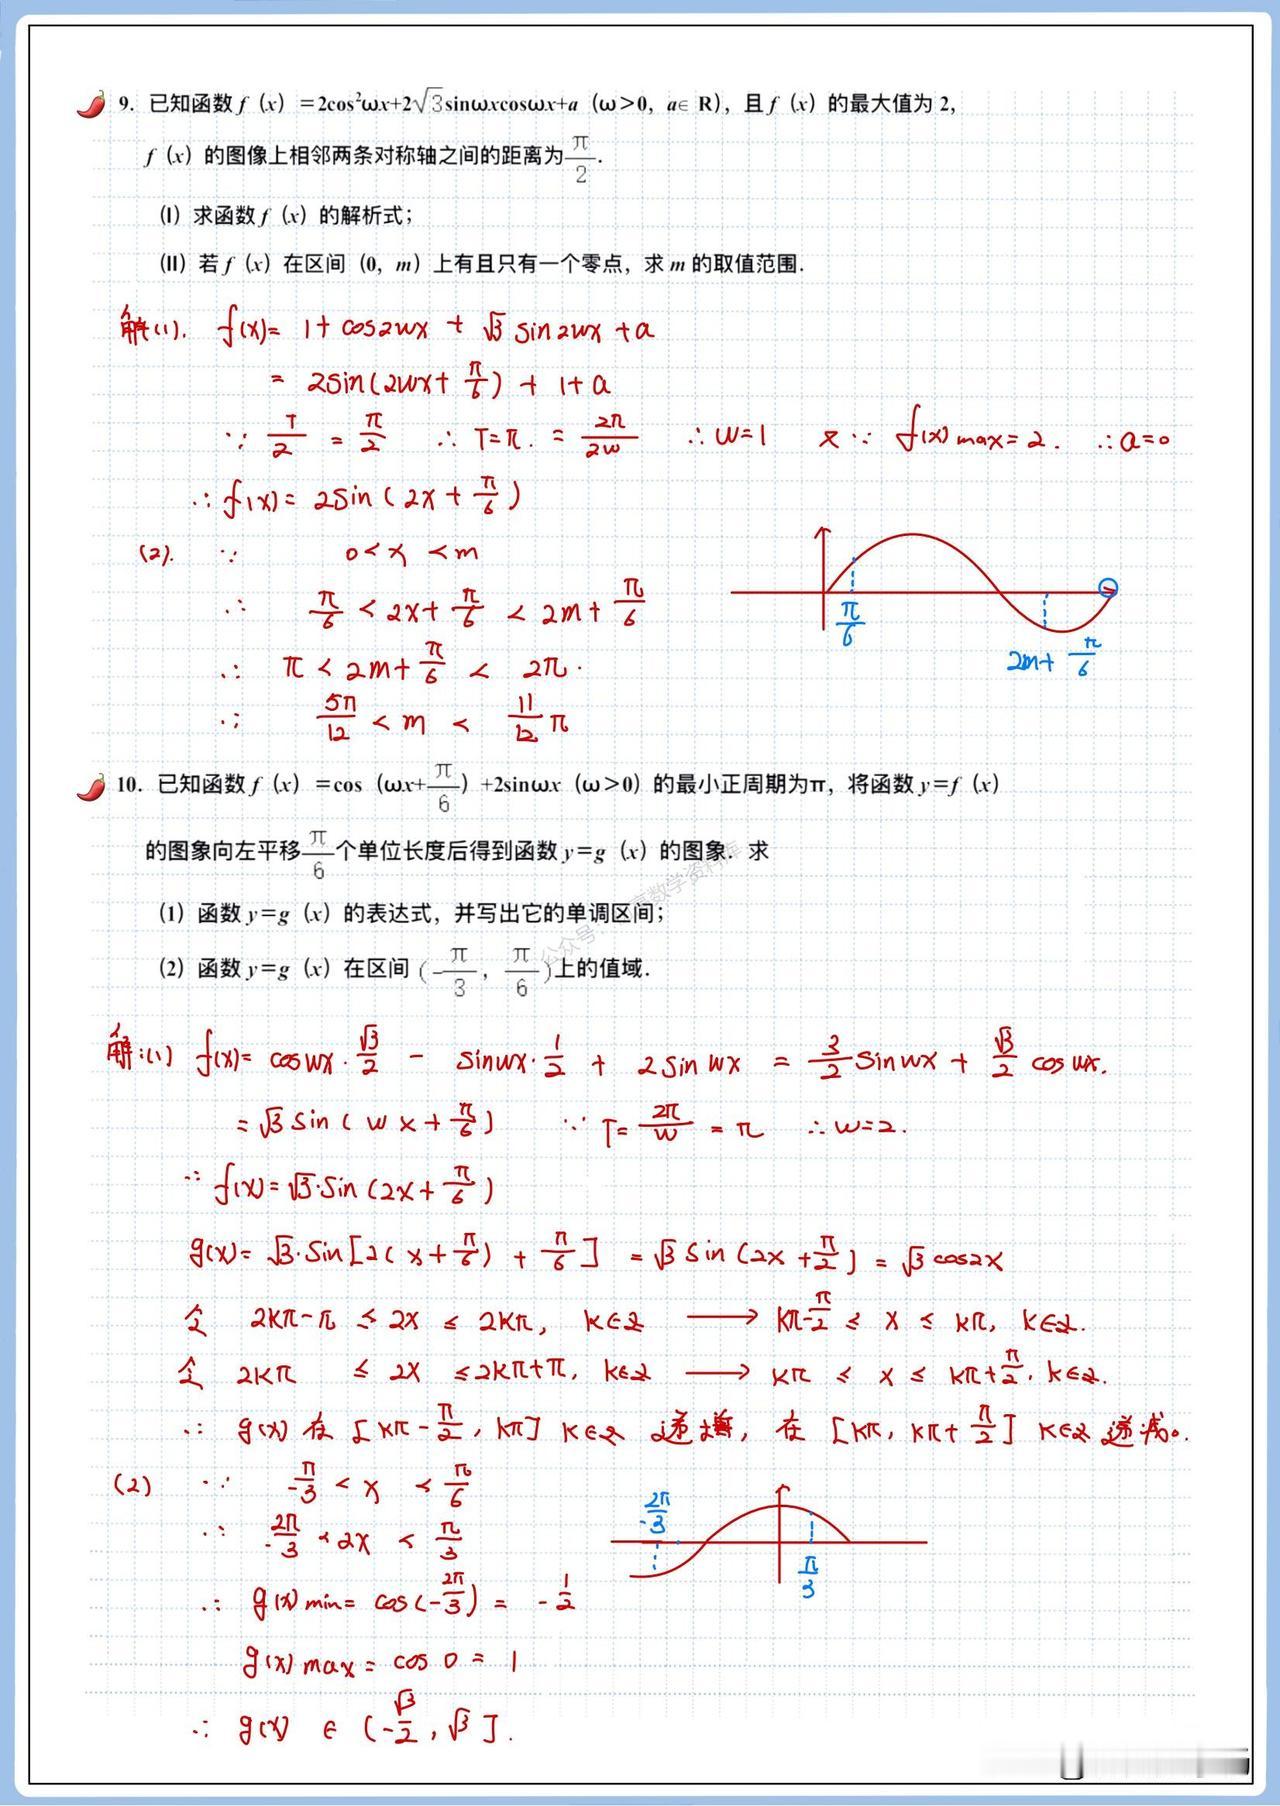 9. 已知函数 f（x）=2cos²ωx+2√3sinωxcosωx+a（ω>0，a∈ R），且 f（x）的最大值为 2，
f（x）的图像上相邻两条对称轴之间的距离为π/2.
（Ⅰ）求函数 f（x）的解析式；
（Ⅱ）若 f（x）在区间（0，m）上有且只有一个零点，求 m 的取值范围.
解(1). f(x)= 1+ cos2wx + √3 sin2wx +a
= 2sin(2wx+ π/6) + 1+a
∵ T/2 = π/2 ∴ T=π. = 2π/2w ∴ w=1 又∵ f(x) max=2. ∴a=0
∴ f(x)= 2sin( 2x + π/6 )
(2). ∵ 0< x <m
∴ π/6 < 2x+ π/6 < 2m+ π/6
π/6
∴ π < 2m+ π/6 < 2π.
2m+ π/6
∴ 5π/12 < m < 11/12 π
10. 已知函数 f（x）=cos（ωx+π/6）+2sinωx（ω>0）的最小正周期为π，将函数 y=f（x）
的图象向左平移π/6个单位长度后得到函数 y=g（x）的图象. 求
（1）函数 y=g（x）的表达式，并写出它的单调区间；
（2）函数 y=g（x）在区间 (-π/3，π/6)上的值域.
公众号 数学资料库
解:(1) f(x)= coswx·√3/2 - sinwx·1/2 + 2sin wx = 3/2 sinwx + √3/2 cos wx.
= √3 sin( wx+ π/6 ) ∵ T= 2π/w = π ∴w=2.
∴ f(x)=√3·sin(2x+ π/6 )
g(x)= √3·sin[2( x+ π/6) + π/6 ] = √3 sin(2x +π/2) = √3 cos2x
令 2kπ-π ≤ 2x ≤ 2kπ, k∈Z ⟶ kπ-π/2 ≤ x ≤ kπ, k∈Z.
令 2kπ ≤ 2x ≤2kπ+π, k∈Z ⟶ kπ ≤ x ≤ kπ+π/2. k∈Z.
∴ g(x) 在 [kπ-π/2, kπ] k∈Z 递增, 在 [kπ, kπ+ π/2] k∈Z 递减。
(2) ∵ -π/3 < x < π/6
∴ -2π/3 <2x < π/3
-2π/3
π/3
∴ g(x) min= cos(-2π/3) = -1/2
g(x) max = cos 0 = 1
∴ g(x) ∈ (-√3/2, √3 ].